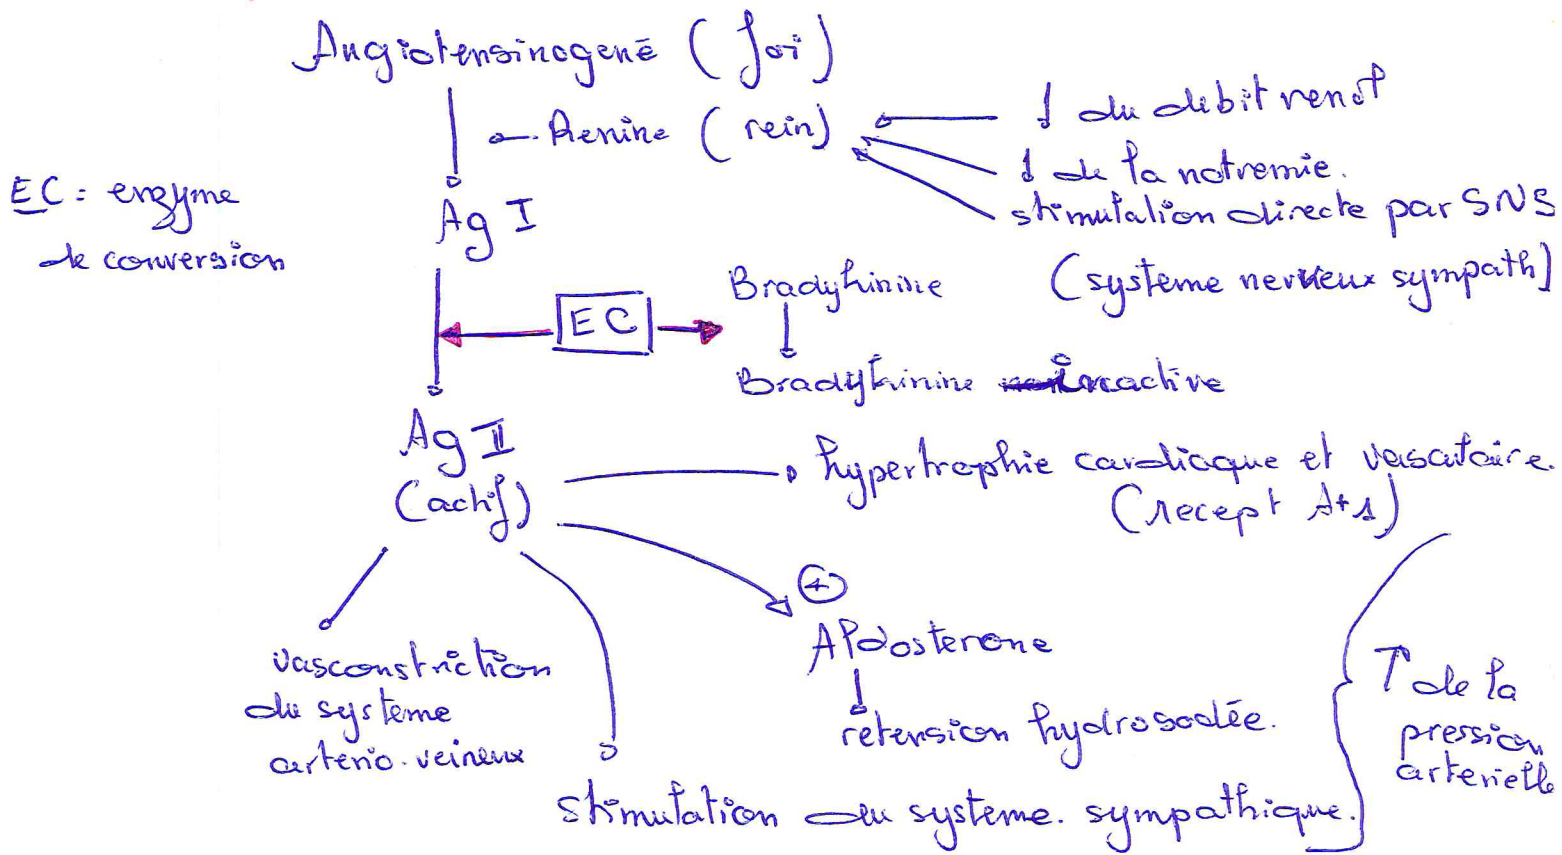 Angiotensinogenē (foi)
Renine (rein)
↓ du debit renal
↓ de la natremie.
stimulation directe par SNS
(systeme nerveux sympath)
EC : enzyme
de conversion
Ag I
EC
Bradykinine
Bradykinine inactive
Ag II
(actif)
hypertrophie cardiaque et vasculaire.
(recept At1)
+
Aldosterone
retension hydrosodée.
vasconstriction
du systeme
arterio-veineux
stimulation du systeme. sympathique.
↑ de la
pression
arterielle